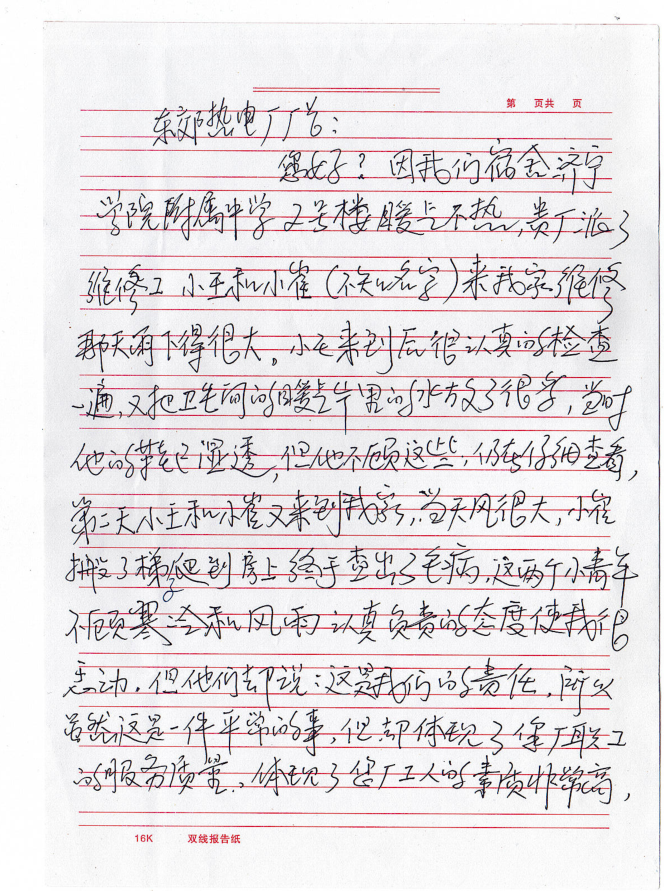 第 页共 页
东郊热电厂厂长:
您好?因我们宿舍济宁
学院附属中学2号楼暖气不热,贵厂派了
维修工 小王和小崔(不知名字)来我家维修
那天雨下得很大。小王来到后很认真的检查
一遍,又把卫生间的暖气片里的水放了很多,当时
他的鞋已湿透,但他不顾这些,仍在仔细查看,
第二天小王和小崔又来到我家,当天风很大,小崔
搬了梯子爬到房上终于查出了毛病,这两个小青年
不顾寒冷和风雨认真负责的态度使我很
感动.但他们却说:这是我们的责任,所以
虽然这是一件平常的事,但却体现了您厂职工
的服务质量.,体现了您厂工人的素质非常高,
16K 双线报告纸